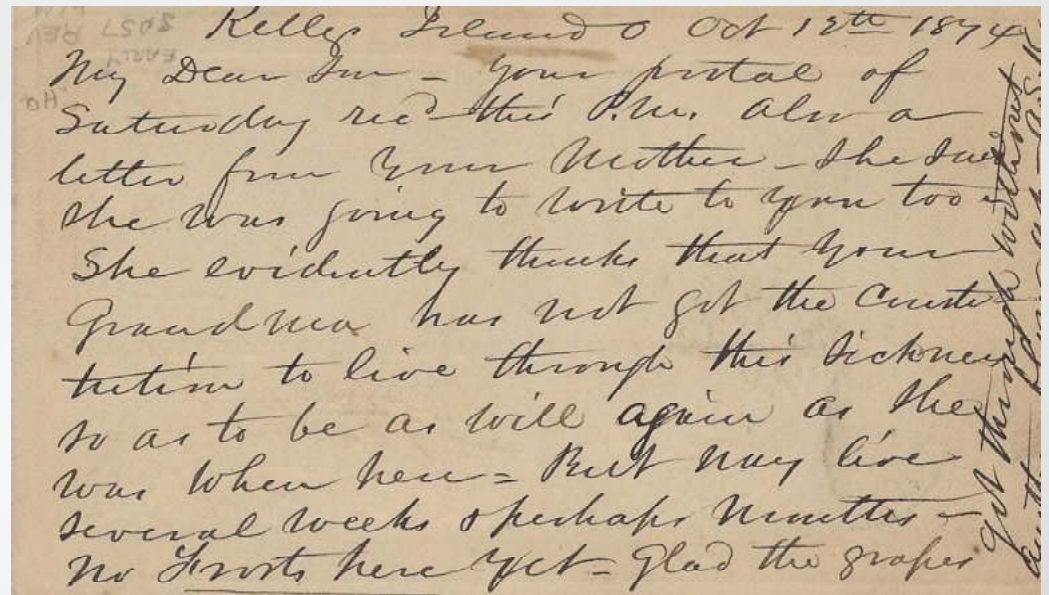 Kelleys Island O Oct 12th 1874
My Dear Son - Your postal of
Saturday rec'd this P.M. also a
letter from your Mother - She said
she was going to write to you too -
She evidently thinks that Your
Grandma has not got the Consti
tution to live through this Sickness
so as to be as well again as she
was when here = But may live
several weeks & perhaps months -
No Frosts here yet = Glad the grapes
got through without